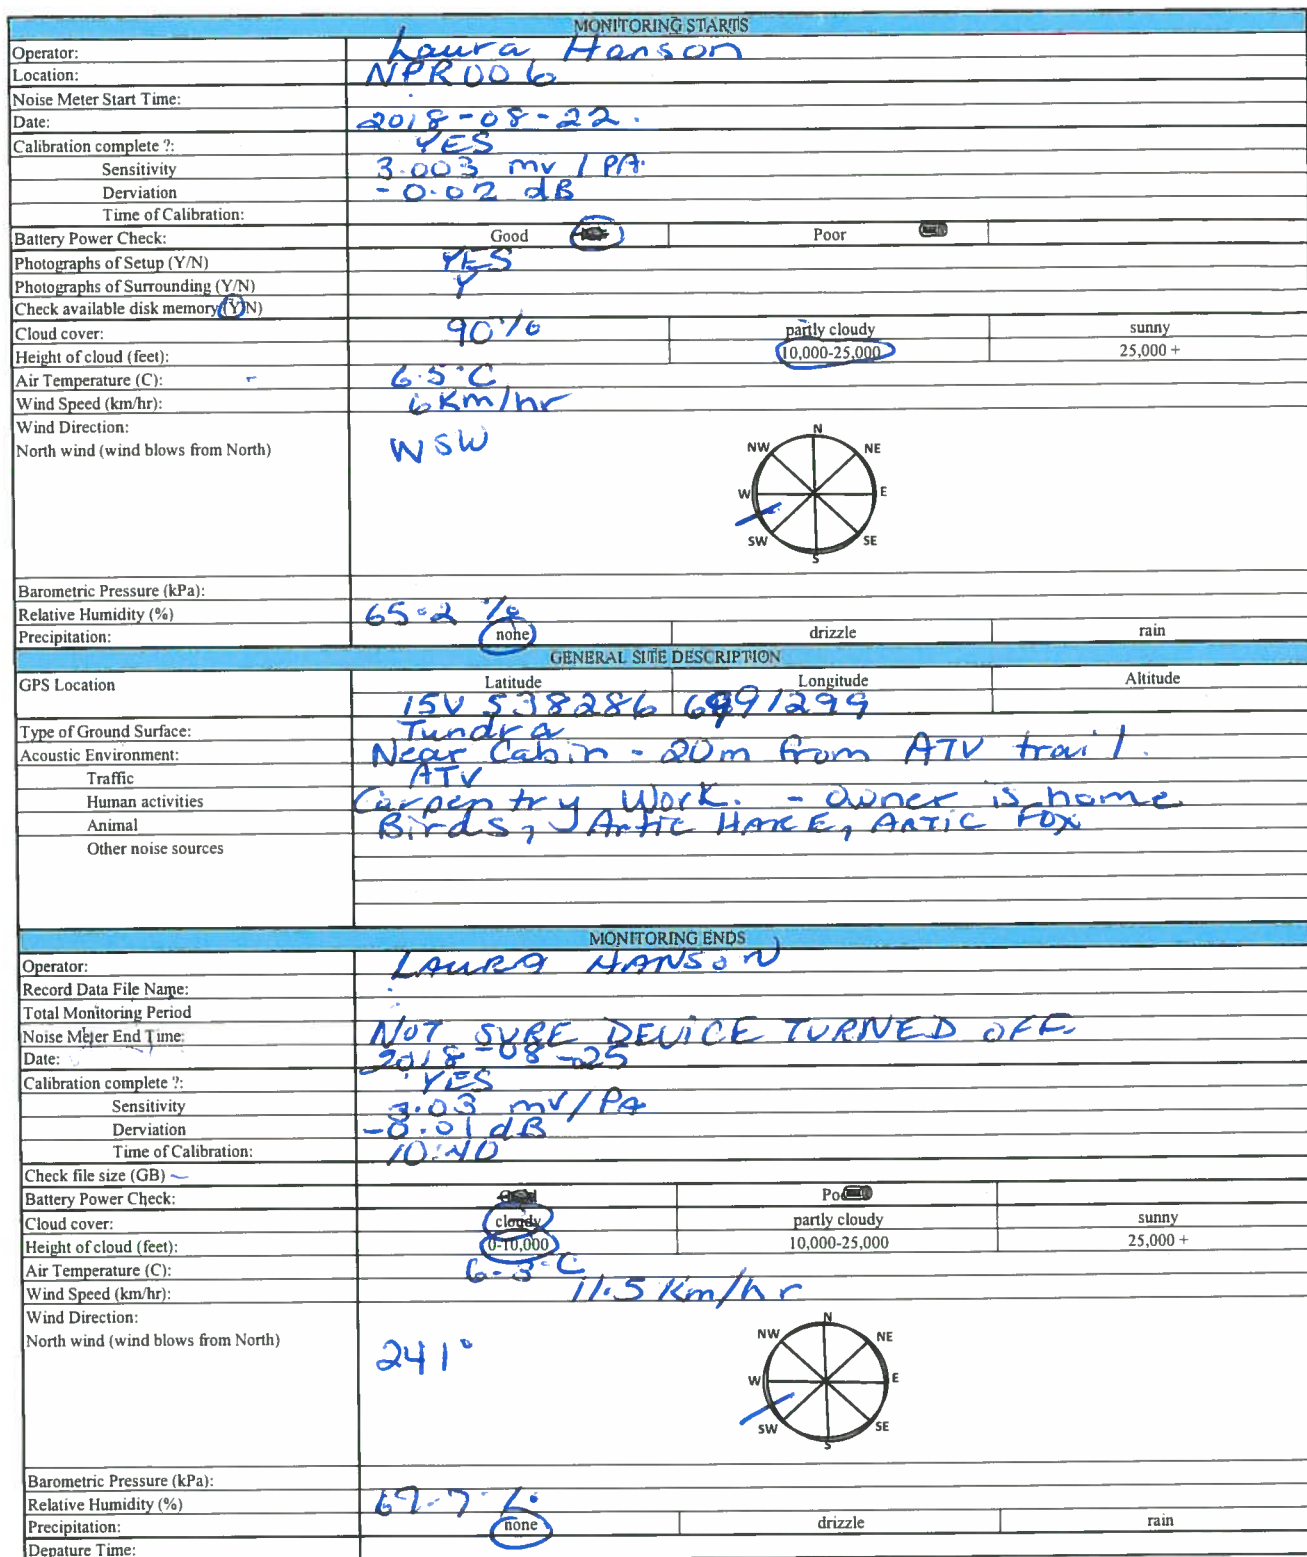 MONITORING STARTS
Operator: Laura Hanson
Location: NPR006
Noise Meter Start Time:
Date: 2018-08-22.
Calibration complete ?: YES
Sensitivity 3.003 mv / PA.
Derviation -0.02 dB
Time of Calibration:
Battery Power Check: Good Poor
Photographs of Setup (Y/N) YES
Photographs of Surrounding (Y/N) Y
Check available disk memory (Y/N)
Cloud cover: 90% partly cloudy sunny
Height of cloud (feet): 10,000-25,000 25,000 +
Air Temperature (C): 6.5°C
Wind Speed (km/hr): 6 Km/hr
Wind Direction:
North wind (wind blows from North) WSW
N
NW NE
W E
SW SE
S
Barometric Pressure (kPa):
Relative Humidity (%) 65.2 %
Precipitation: none drizzle rain
GENERAL SITE DESCRIPTION
GPS Location Latitude Longitude Altitude
15V 538286 6991299
Type of Ground Surface: Tundra
Acoustic Environment: Near Cabin - 20m from ATV trail.
Traffic ATV
Human activities Carpentry Work. - Owner is home
Animal Birds, Artic HARE, ARTIC FOX
Other noise sources
MONITORING ENDS
Operator: LAURA HANSON
Record Data File Name:
Total Monitoring Period
Noise Meter End Time: NOT SURE DEVICE TURNED OFF.
Date: 2018-08-25
Calibration complete ?: YES
Sensitivity 3.03 mV/PA
Derviation -0.01 dB
Time of Calibration: 10:40
Check file size (GB)
Battery Power Check:
Cloud cover: cloudy partly cloudy sunny
Height of cloud (feet): 0-10,000 10,000-25,000 25,000 +
Air Temperature (C): 6.3°C
Wind Speed (km/hr): 11.5 Km/hr
Wind Direction:
North wind (wind blows from North) 241°
N
NW NE
W E
SW SE
S
Barometric Pressure (kPa):
Relative Humidity (%)
Precipitation: none drizzle rain
Depature Time: